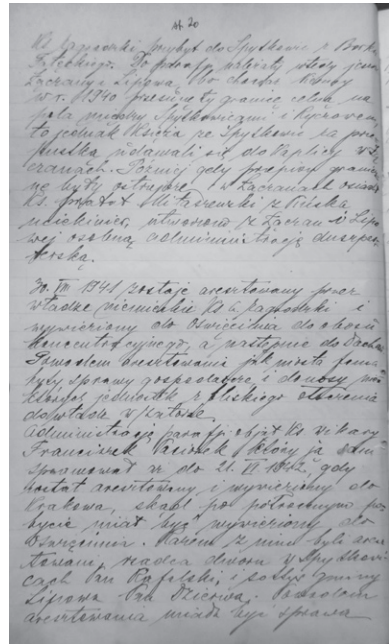 N. 20
Ks. Zagrodzki przybył do Spytkowic z Borku
Fałęckiego. Do parafji należały wtedy jeszcze
Łączany i Lipowa, bo chociaż Niemcy
w r. 1940 przesunęły granicę celną na
pola między Spytkowicami i Ryczowem
to jednak Księża ze Spytkowic za prze
pustką udawali się do kaplicy w Łą
czanach. Później gdy przepisy granicz
ne były ostrzejsze i w Łączanach osiadł
Ks. prałat z
uciekinier, utworzono z Łączan i Lipo
wej osobną administrację duszpa
sterską.
30. VII 1941 zostaje aresztowany przez
władze niemieckie Ks. Zagrodzki i
wywieziony do Oświęcimia do obozu
koncentracyjnego, a następnie do Dachau
Powodem aresztowania jak miała
były sprawy gospodarcze i donosy
jednostek z bliskiego otoczenia
do władz w Zatorze.
Administrację parafji objął Ks. Wikary
Franciszek który ją sam
sprawował aż do 21. VI 1942, gdy
został aresztowany i wywieziony do
Krakowa, skąd po półrocznym po
bycie miał być wywieziony do
Oświęcimia. Razem z nim byli aresz
towani, rządca dworu w Spytkowi
cach Pan Rafalski, i sołtys gminy
Lipowa Pan Powodem
aresztowania miała być sprawa